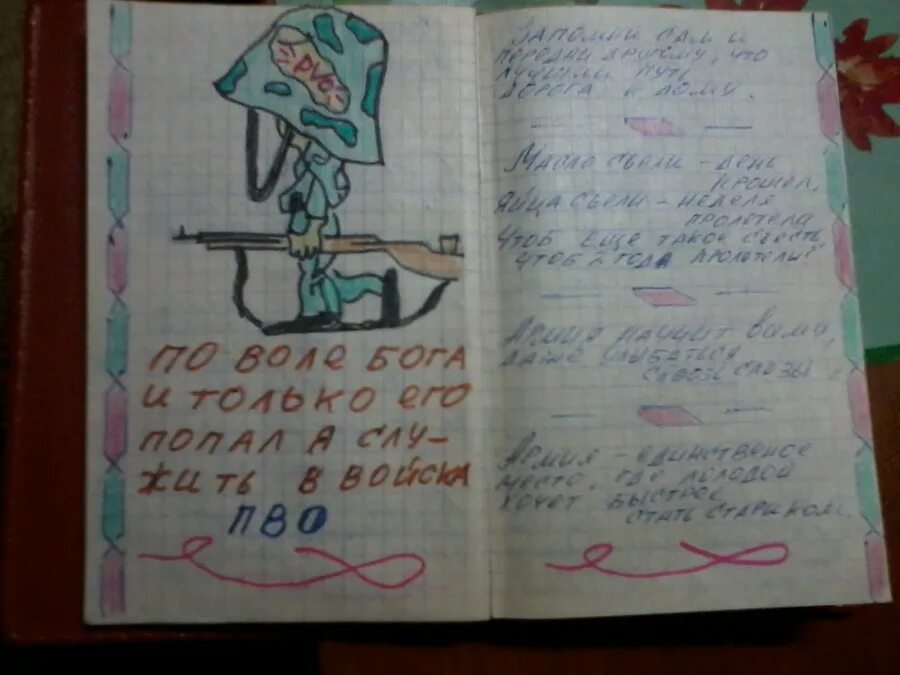 PVO
ПО ВОЛЕ БОГА
И ТОЛЬКО ЕГО
ПОПАЛ Я СЛУ-
ЖИТЬ В ВОЙСКА
ПВО
ЗАПОМНИ САМ И
ПЕРЕДАЙ ДРУГОМУ, ЧТО
ЛУЧШИЙ ПУТЬ
ДОРОГА К ДОМУ.
МАСЛО СЪЕЛИ - ДЕНЬ
ПРОШЕЛ,
ЯЙЦА СЪЕЛИ - НЕДЕЛЯ
ПРОЛЕТЕЛА
ЧТОБ ЕЩЕ ТАКОЕ СЪЕСТЬ,
ЧТОБ 2 ГОДА ПРОЛЕТЕЛИ?
АРМИЯ НАУЧИТ
ДАЖЕ УЛЫБАТЬСЯ
СКВОЗЬ СЛЕЗЫ.
АРМИЯ - ЕДИНСТВЕНОЕ
МЕСТО, ГДЕ МОЛОДОЙ
ХОЧЕТ БЫСТРЕЕ
СТАТЬ СТАРИКОМ.